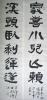 最喜小兒亡賴
溪頭臥剝蓮蓬